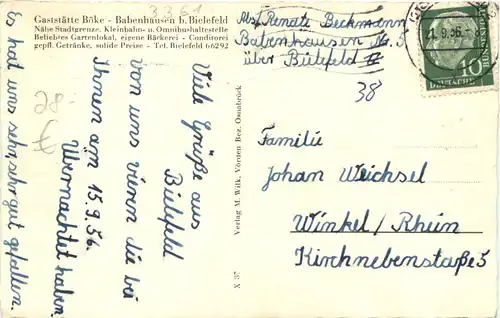 Gaststätte Böke - Babenhausen b. Bielefeld
Nähe Stadtgrenze, Kleinbahn- u. Omnibushaltestelle
Beliebtes Gartenlokal, eigene Bäckerei - Conditorei
gepfl. Getränke, solide Preise - Tel. Bielefeld 66292
3361
Abs. Renate Beckmann
Babenhausen Nr. 5
über Bielefeld
38
21.9.56
10
DEUTSCHE
28-
€
Viele Grüße aus
Bielefeld
von uns vieren die bei
Ihnen am 15.9.56.
Übernachtet haben.
Es hat uns sehr, sehr gut gefallen.
Verlag M. Wilk, Vörden Bez. Osnabrück
X 37
Familie
Johan Weichsel
Winkel/Rhein
Kirchnebenstaße 5